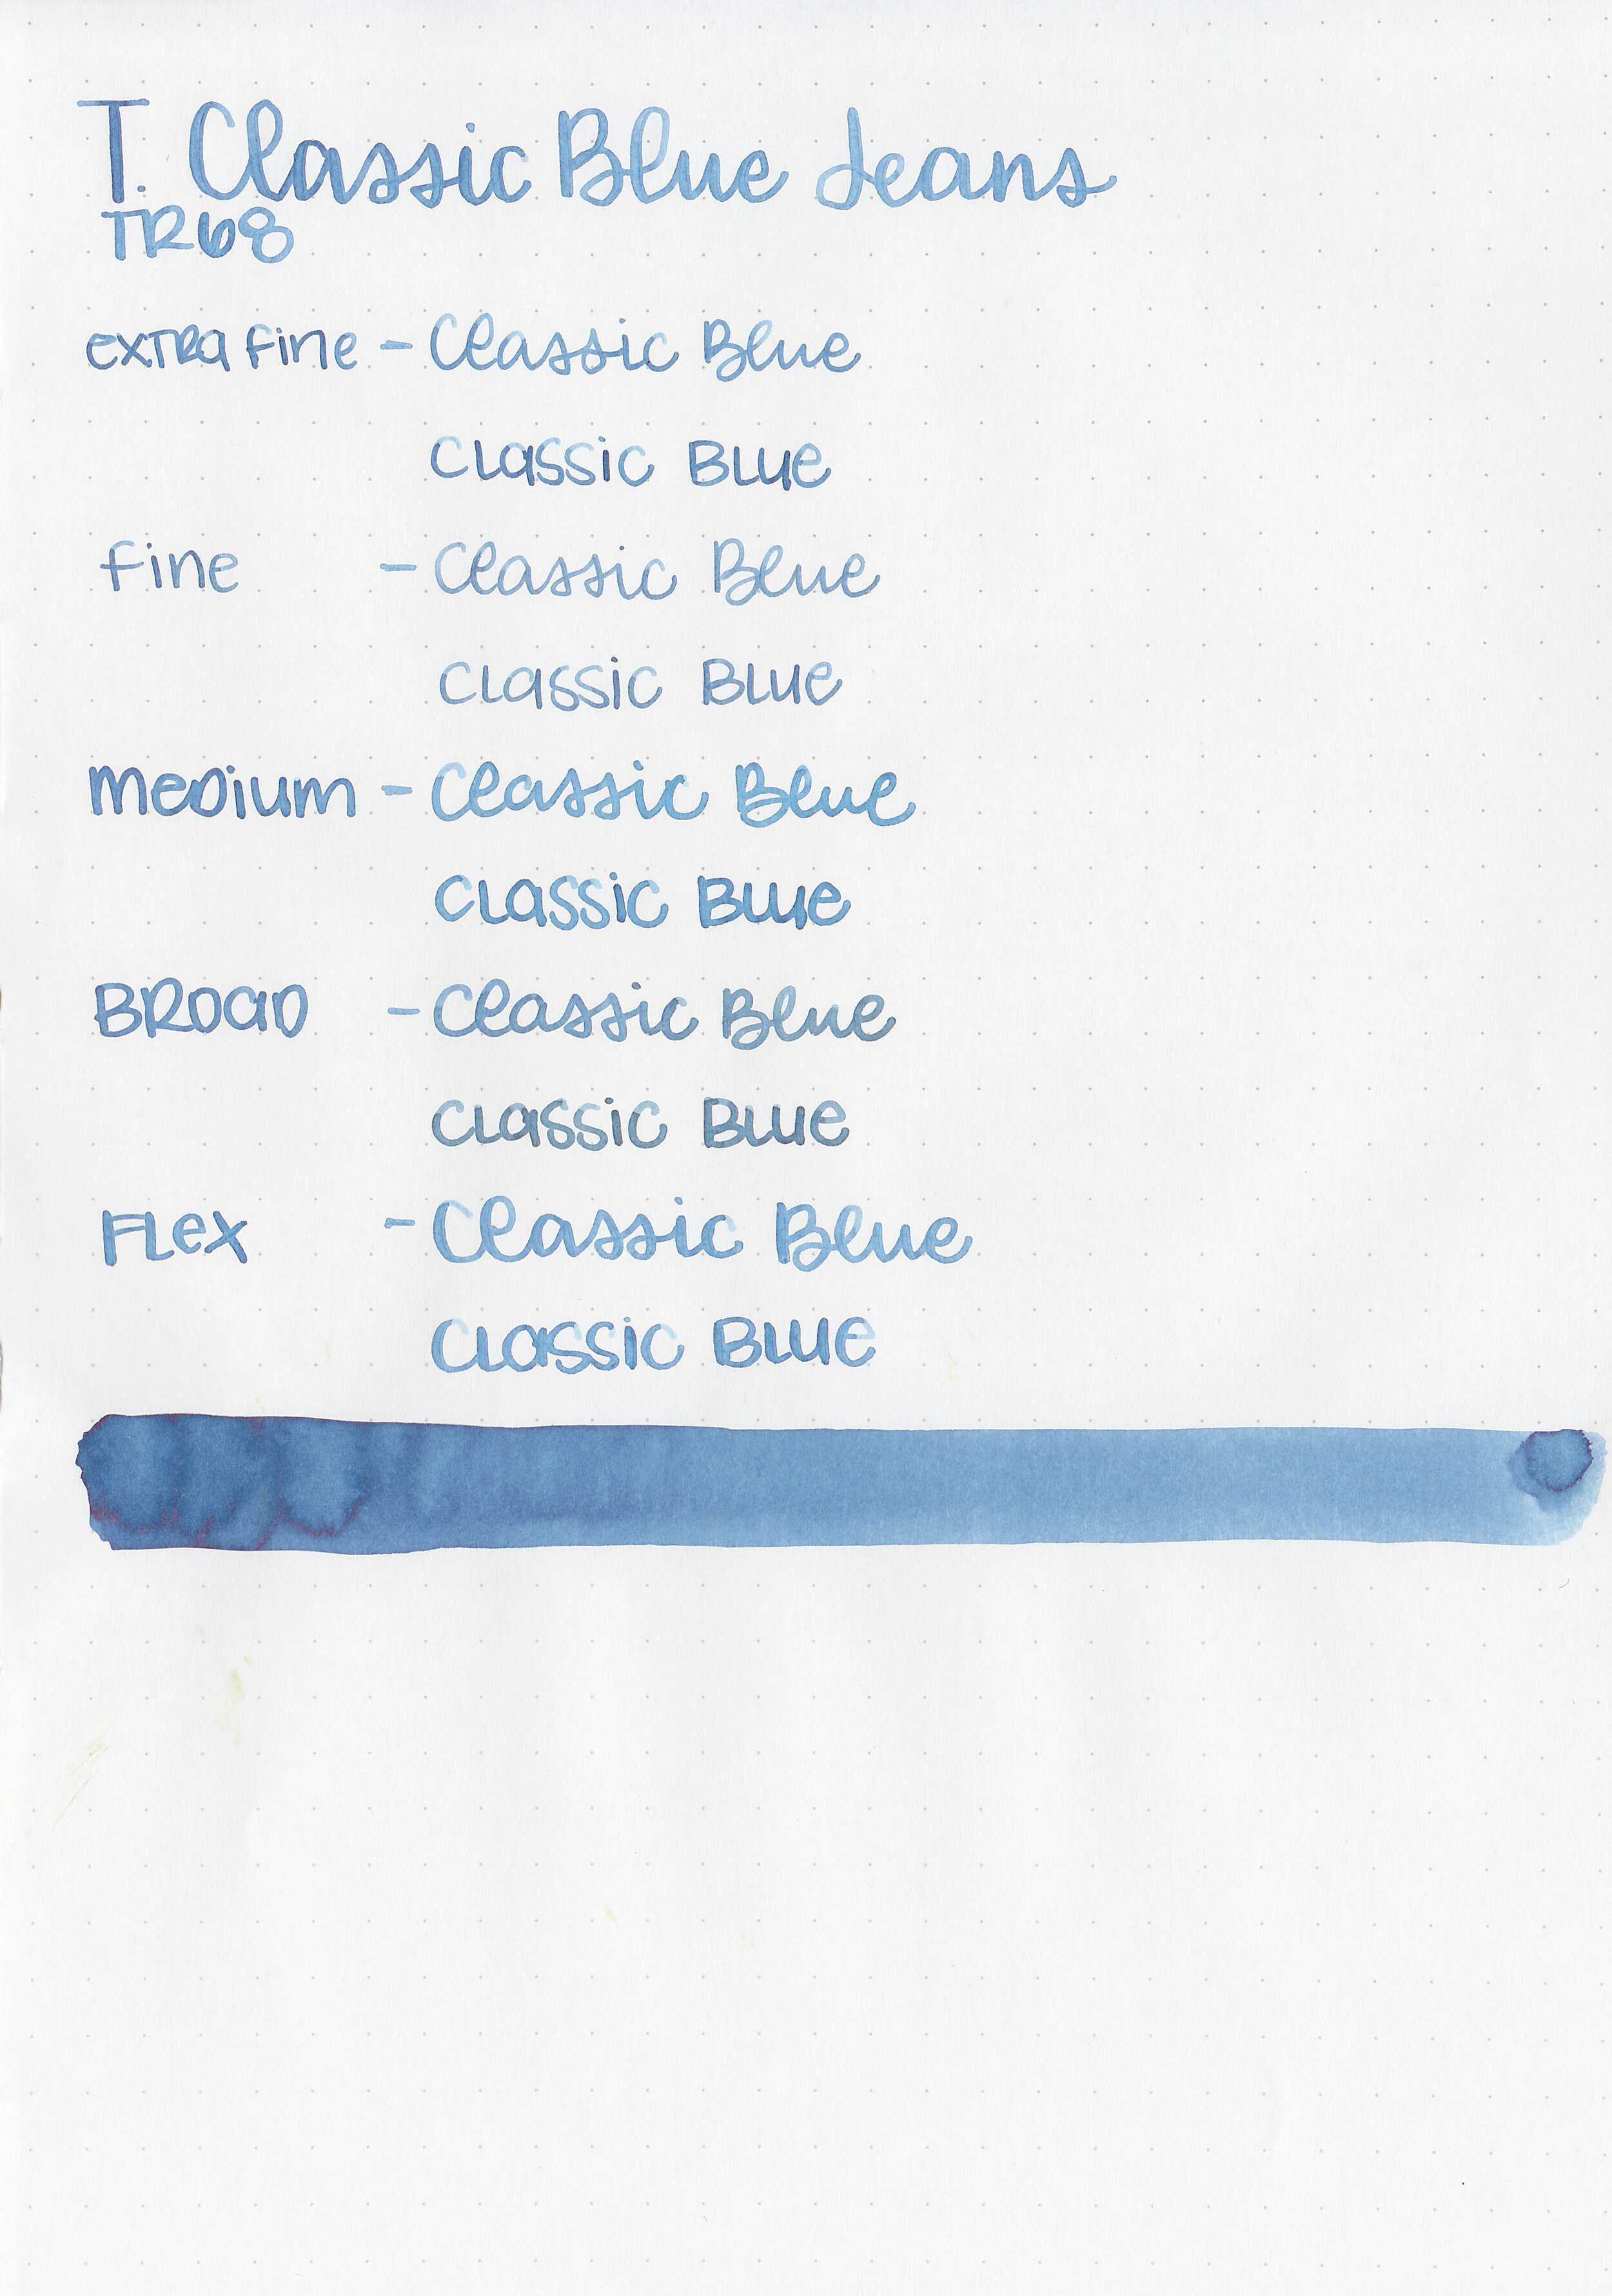 T. Classic Blue Jeans
TR68
extra fine - Classic Blue
Classic Blue
fine - Classic Blue
Classic Blue
medium - Classic Blue
Classic Blue
Broad - Classic Blue
Classic Blue
Flex - Classic Blue
Classic Blue